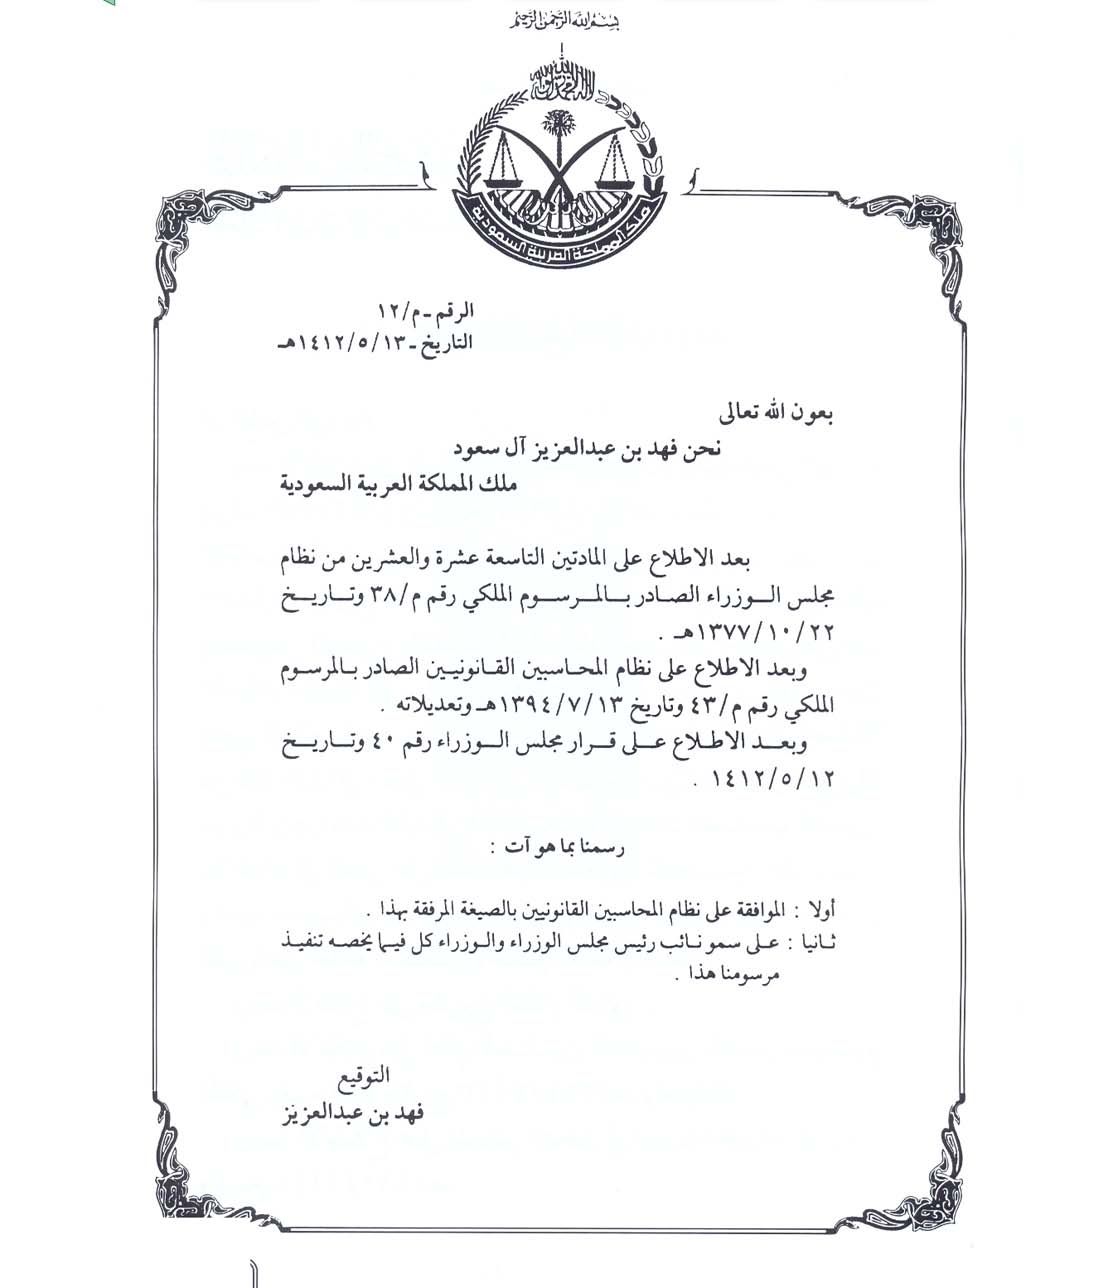 بسم الله الرحمن الرحيم
لا إله إلا الله محمد رسول الله
ملك المملكة العربية السعودية
الرقم ـ م/١٢
التاريخ ـ ١٤١٢/٥/١٣هـ
بعون الله تعالى
نحن فهد بن عبدالعزيز آل سعود
ملك المملكة العربية السعودية
بعد الاطلاع على المادتين التاسعة عشرة والعشرين من نظام
مجلس الوزراء الصادر بالمرسوم الملكي رقم م/٣٨ وتاريخ
١٣٧٧/١٠/٢٢هـ .
وبعد الاطلاع على نظام المحاسبين القانونيين الصادر بالمرسوم
الملكي رقم م/٤٣ وتاريخ ١٣٩٤/٧/١٣هـ وتعديلاته .
وبعد الاطلاع على قرار مجلس الوزراء رقم ٤٠ وتاريخ
١٤١٢/٥/١٢ .
رسمنا بما هو آت :
أولا : الموافقة على نظام المحاسبين القانونيين بالصيغة المرفقة بهذا .
ثانيا : على سمو نائب رئيس مجلس الوزراء والوزراء كل فيما يخصه تنفيذ
مرسومنا هذا .
التوقيع
فهد بن عبدالعزيز